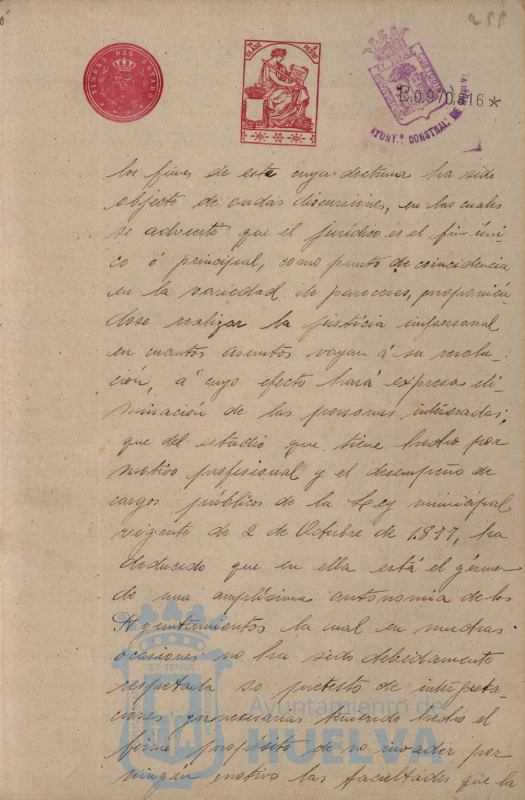 TIMBRE DEL ESTADO
7ª CLASE
AYUNTº CONSTNAL DE HUELVA
B.0.970.816*
los fines de este cuya doctrina ha sido
objecto de ondas discusiones, en las cuales
se advierte que el jurídico es el fin úni-
co ó principal, como punto de coincidencia
en la variedad de pareceres, proponién-
dose realizar la justicia impersonal
en cuantos asuntos vayan á su resolu-
ción, á cuyo efecto hará expresa eli-
minación de las personas interesadas;
que del estudio que tiene hecho por
motivo profesional y el desempeño de
cargos públicos de la Ley municipal
vigente de 2 de Octubre de 1877, ha
deducido que en ella está el gérmen
de una amplísima autonomía de los
Ayuntamientos la cual en muchas
ocasiones no ha sido debidamente
respetada so pretesto de interpreta-
ciones innecesarias teniendo hecho el
firme propósito de no invadir por
ningún motivo las facultades que la
ET TERRA
Ayuntamiento de
HUELVA